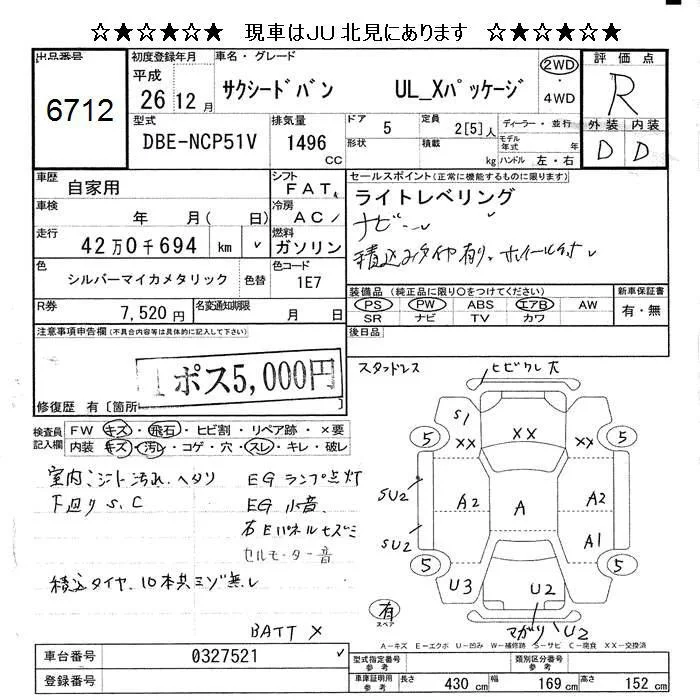 ☆★☆★☆★ 現車はJU北見にあります ☆★☆★☆★
出品番号
6712
初度登録年月
平成
26 12 月
車名・グレード
サクシードバン UL_Xパッケージ
2WD
・
4WD
評価点
R
外装 内装
D D
型式
DBE-NCP51V
排気量
1496
CC
ドア 5
形状
定員 2[5]人
積載 kg
ディーラー・並行
モデル年式 年
ハンドル 左・右
車歴 自家用
シフト
FAT
車検 年 月( 日)
冷房
AC
走行 42万0千694 km
燃料
ガソリン
色 シルバーマイカメタリック 色替
色コード
1E7
R券 7,520円
名変通知期限
月 日
セールスポイント(正常に機能するものに限ります)
ライトレベリング
ナビー
積込みタイヤ有り、ホイール付
装備品(純正品に限り○をつけてください)
PS PW ABS エアB AW
SR ナビ TV カワ
新車保証書
有・無
後日品
注意事項申告欄(不具合内容等は具体的に記入して下さい)
1ポス5,000円
修復歴 有〔箇所 〕
検査員記入欄
FW キズ・飛石・ヒビ割・リペア跡・×要
内装 キズ・汚レ・コゲ・穴・スレ・キレ・破レ
室内シート汚れ、ヘタリ
下廻りS、C
EGランプ点灯
EG小音
右Eパネルセズミ
セルモーター音
積込タイヤ、10本共ミゾ無し
BATT ×
スタッドレス
ヒビワレ大
S1
XX XX XX
5 5
SU2
A2 A A2
SU2
A1
5 5
U3 U2
有
スペア
マガリ U2
A-キズ E-エクボ U-凹み W-補修跡 S-サビ C-腐食 XX-交換済
車台番号 0327521
登録番号
型式指定番号
参考
類別区分番号
参考
車庫証明用
参考
長さ 430 cm 幅 169 cm 高さ 152 cm